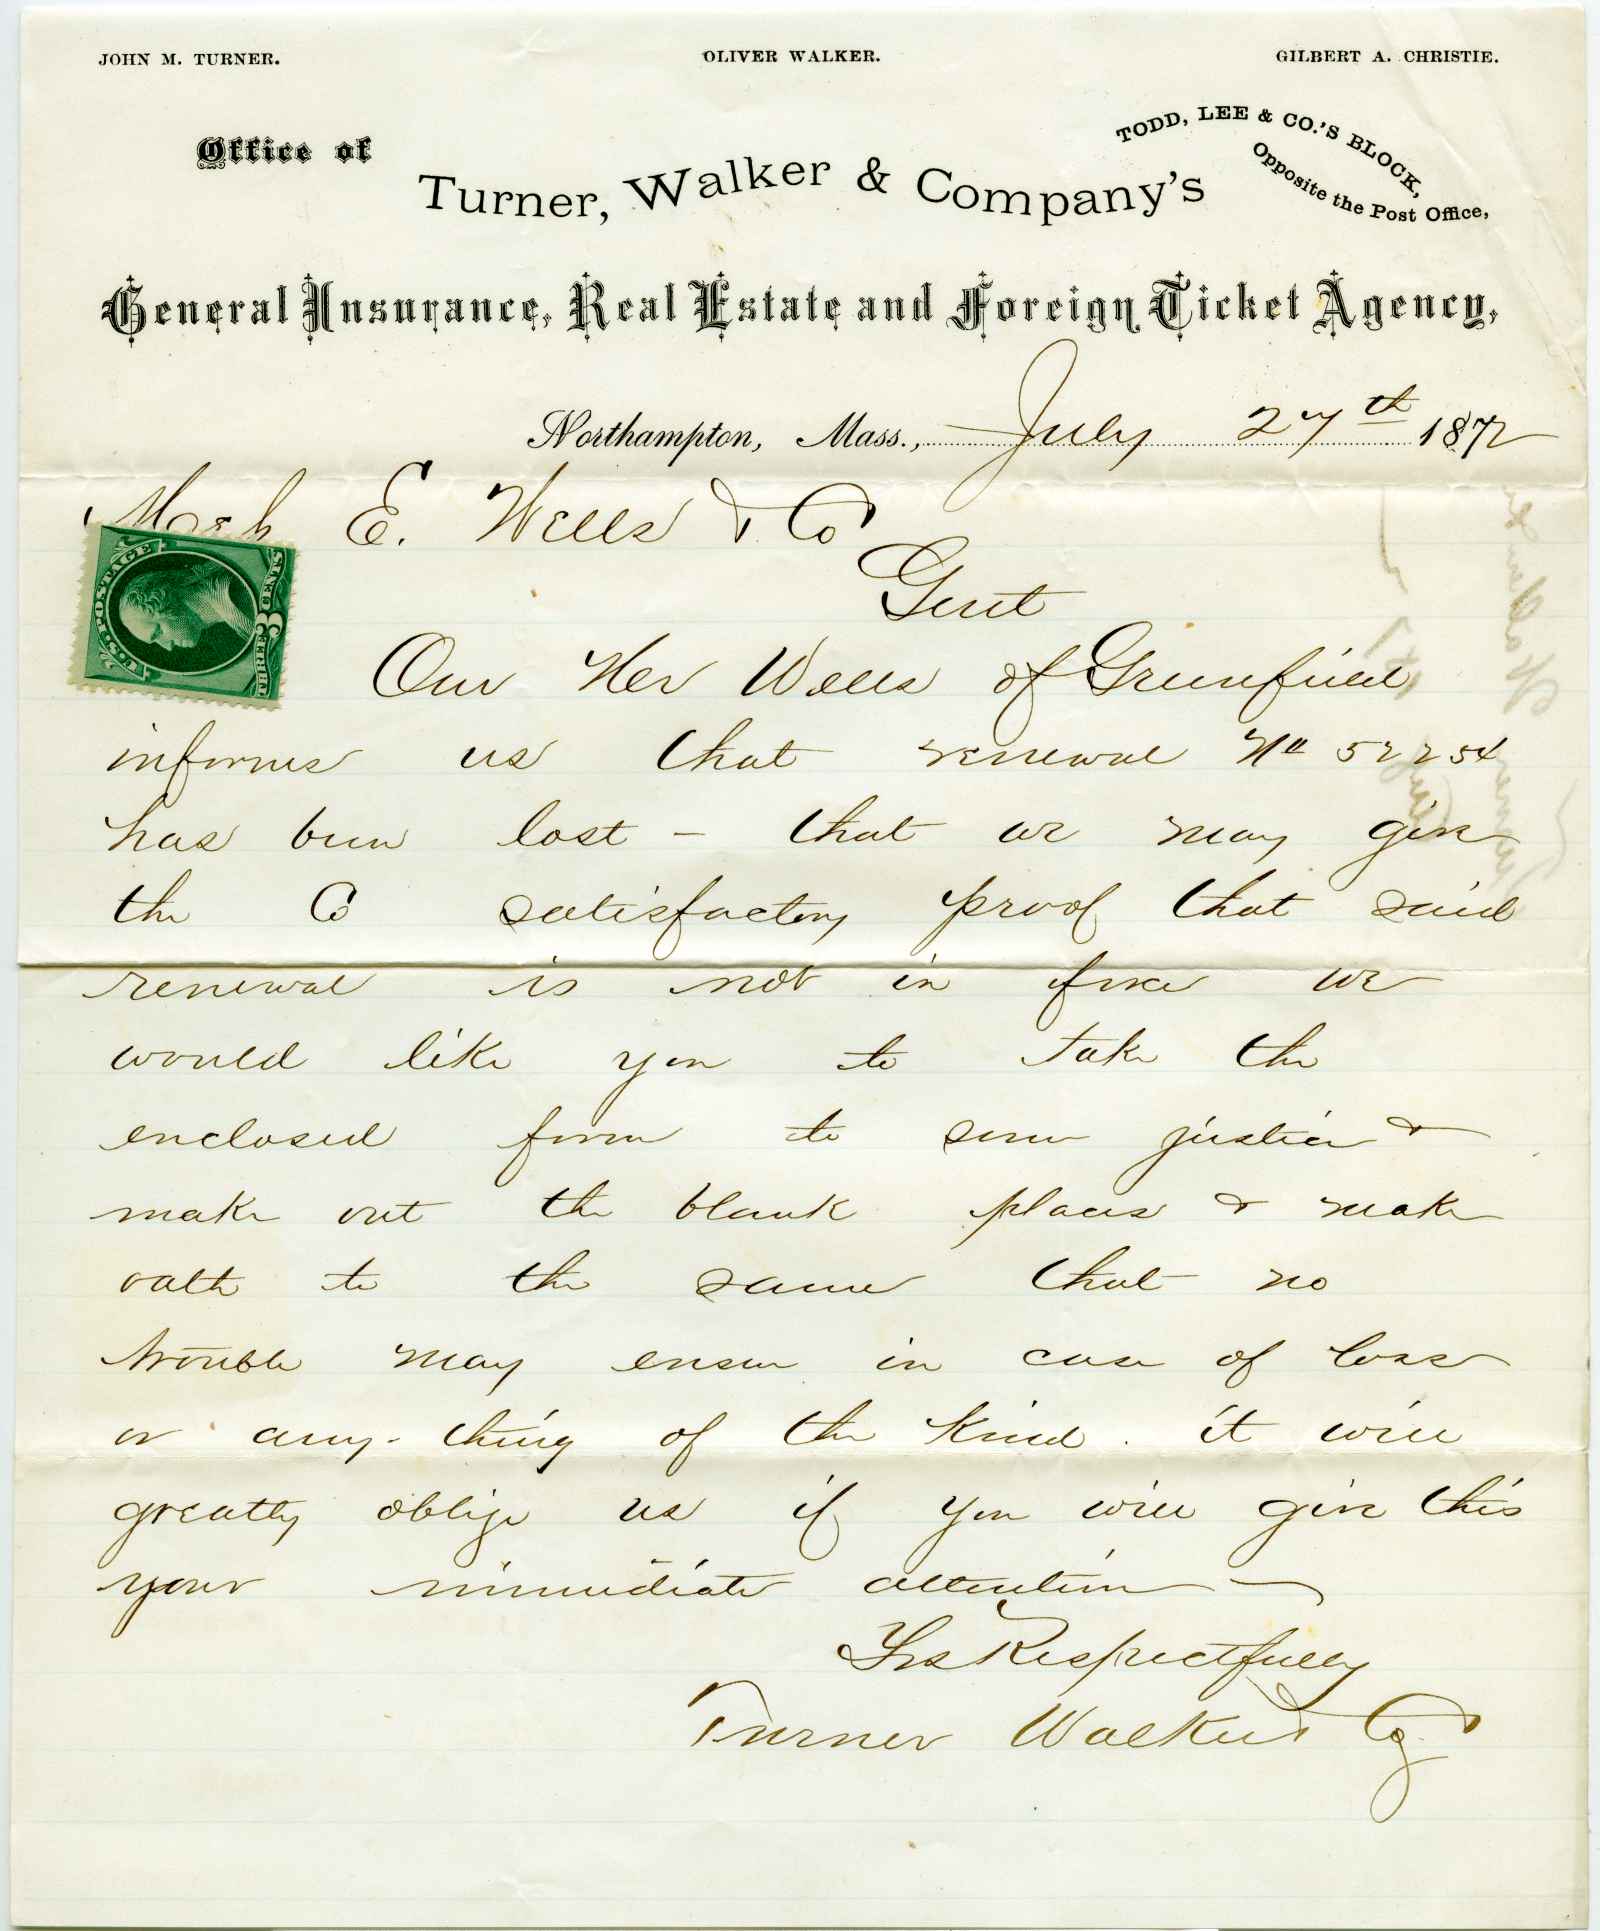 JOHN M. TURNER. OLIVER WALKER. GILBERT A. CHRISTIE.
Office of
Turner, Walker & Company's
TODD, LEE & CO.'S BLOCK,
Opposite the Post Office,
General Insurance, Real Estate and Foreign Ticket Agency,
Northampton, Mass., July 27th 1872
E. Wells & Co
Gent
U.S. POSTAGE
THREE 3 CENTS
Our Mr Wells of Greenfield
informs us that renewal No 52254
has been lost - that we may give
the Co satisfactory proof that said
renewal is not in force we
would like you to take the
enclosed form to some justice &
make out the blank places & make
oath to the same that no
trouble may ensue in case of loss
or any-thing of the kind. it will
greatly oblige us if you will give this
your immediate attention
Yrs Respectfully
Turner Walker & Co